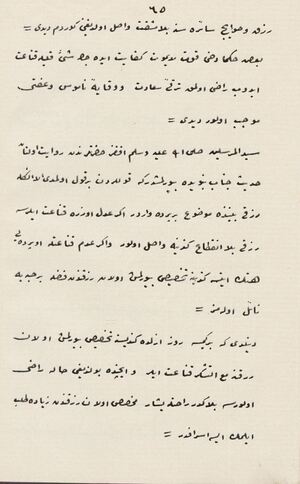 ٦٥
رزق و حوایج سائره سنه بلا مشقت واصل اولدیغنی كوردم دیدی =
بعض حكما دخی قوت لایموت كفایت ایده جك شیئه قناعت
ایدوب راضی اولمق ترقئ سعادت و وقایۀ ناموس و عفتی
موجب اولور دیدی =
سید المرسلین صلی الله علیه وسلم افندمز حضرتلرندن روایت اولنان
حدیث جناب نبویده بیورلمشدركه قوللردن بر قول اولمدی الا آنكله
رزقی بیننده موضوع بر پرده واردر اكر عدل اوزره قناعت ایدرسه
رزقی بلا انقطاع كندویه واصل اولور واكر عدم قناعتله او پرده یی
هتك ایتسه كندویه تخصیص بیورلمش اولان رزقندن فضله بر حبه یه
نائل اوله مز =
دینلدی كه بر كیمسه روز ازلده كندیسنه تخصیص بیورلمش اولان
رزقه مع التشكر قناعت ایدر و ایچنده بولندیغی حاله راضی
اولورسه بلا كدر راحت یشار مخصص اولان رزقندن زیاده طلب
ایلمك ایسه اسرافدر =